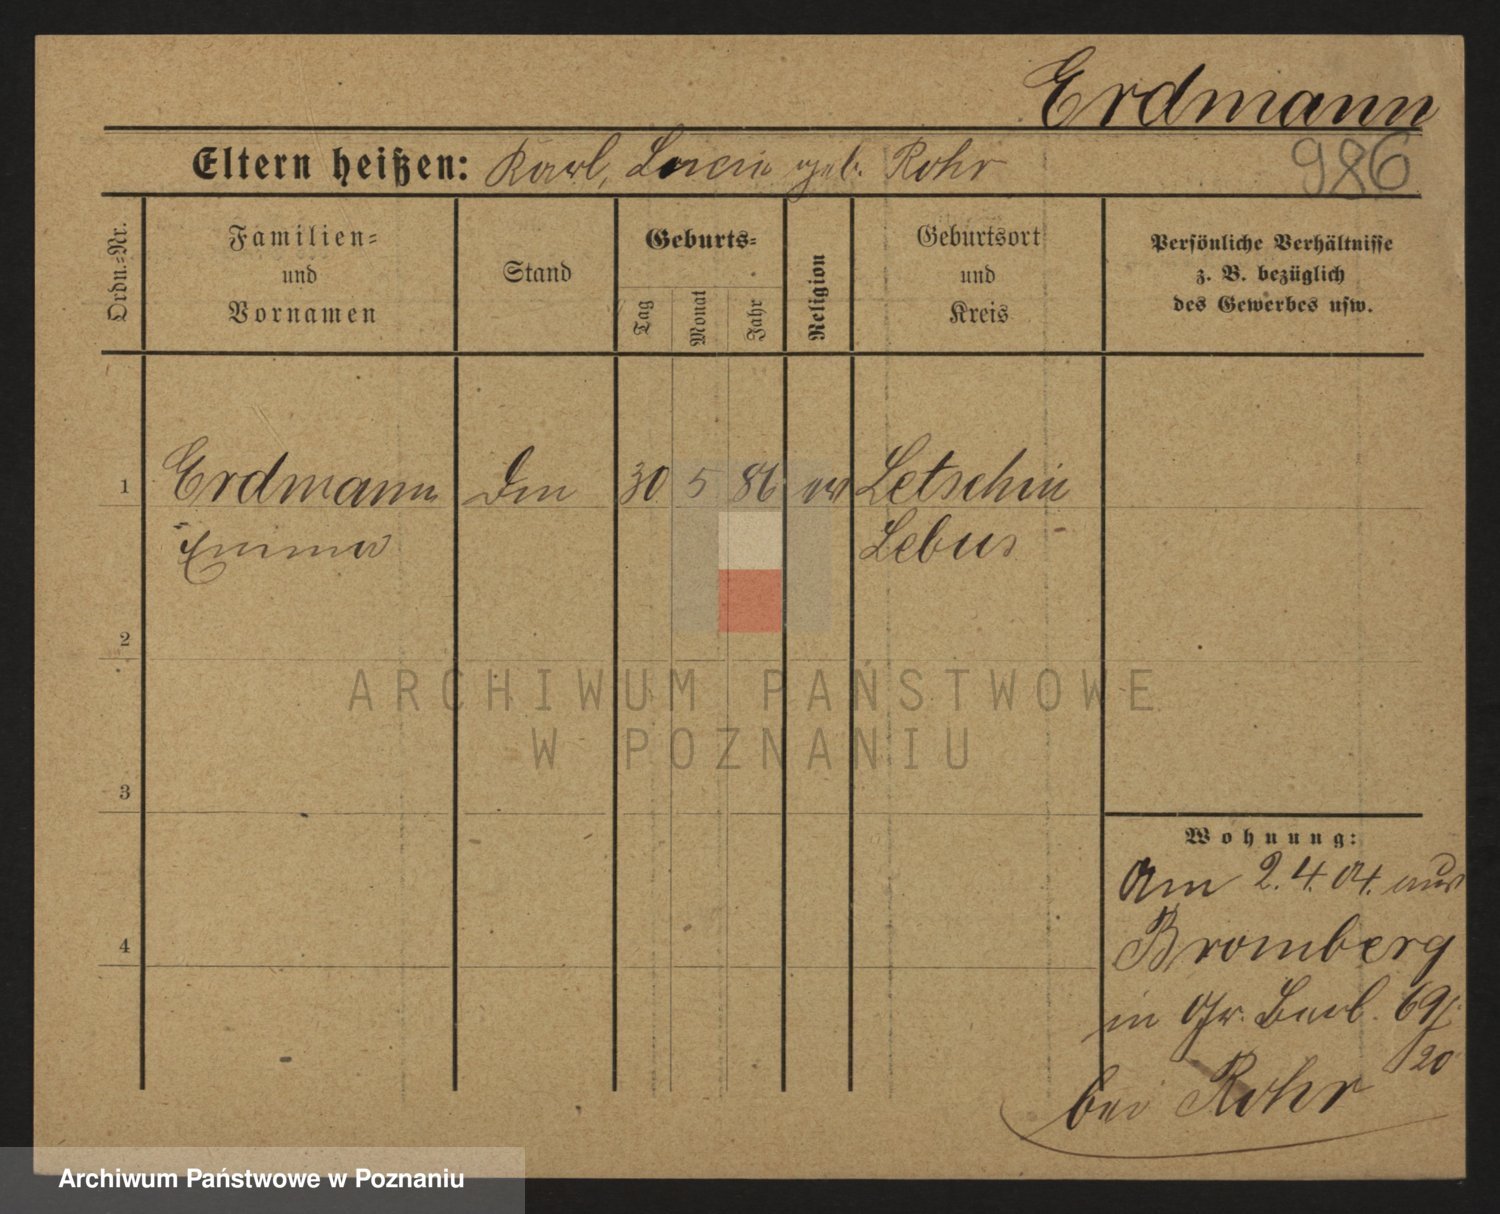 Erdmann
986
Eltern heißen: Karl, geb. Rohr
Ordn.-Nr.
Familien-
und
Vornamen
Stand
Geburts-
Tag
Monat
Jahr
Religion
Geburtsort
und
Kreis
Persönliche Verhältnisse
z. B. bezüglich
des Gewerbes usw.
1 Erdmann 30 5 86 Letschin
Emma Lebus
2
ARCHIWUM PAŃSTWOWE
W POZNANIU
3
Wohnung:
Am 2.4.04. aus
4 Bromberg
in Gr. Berl. 69/
20
bei Rohr
Archiwum Państwowe w Poznaniu